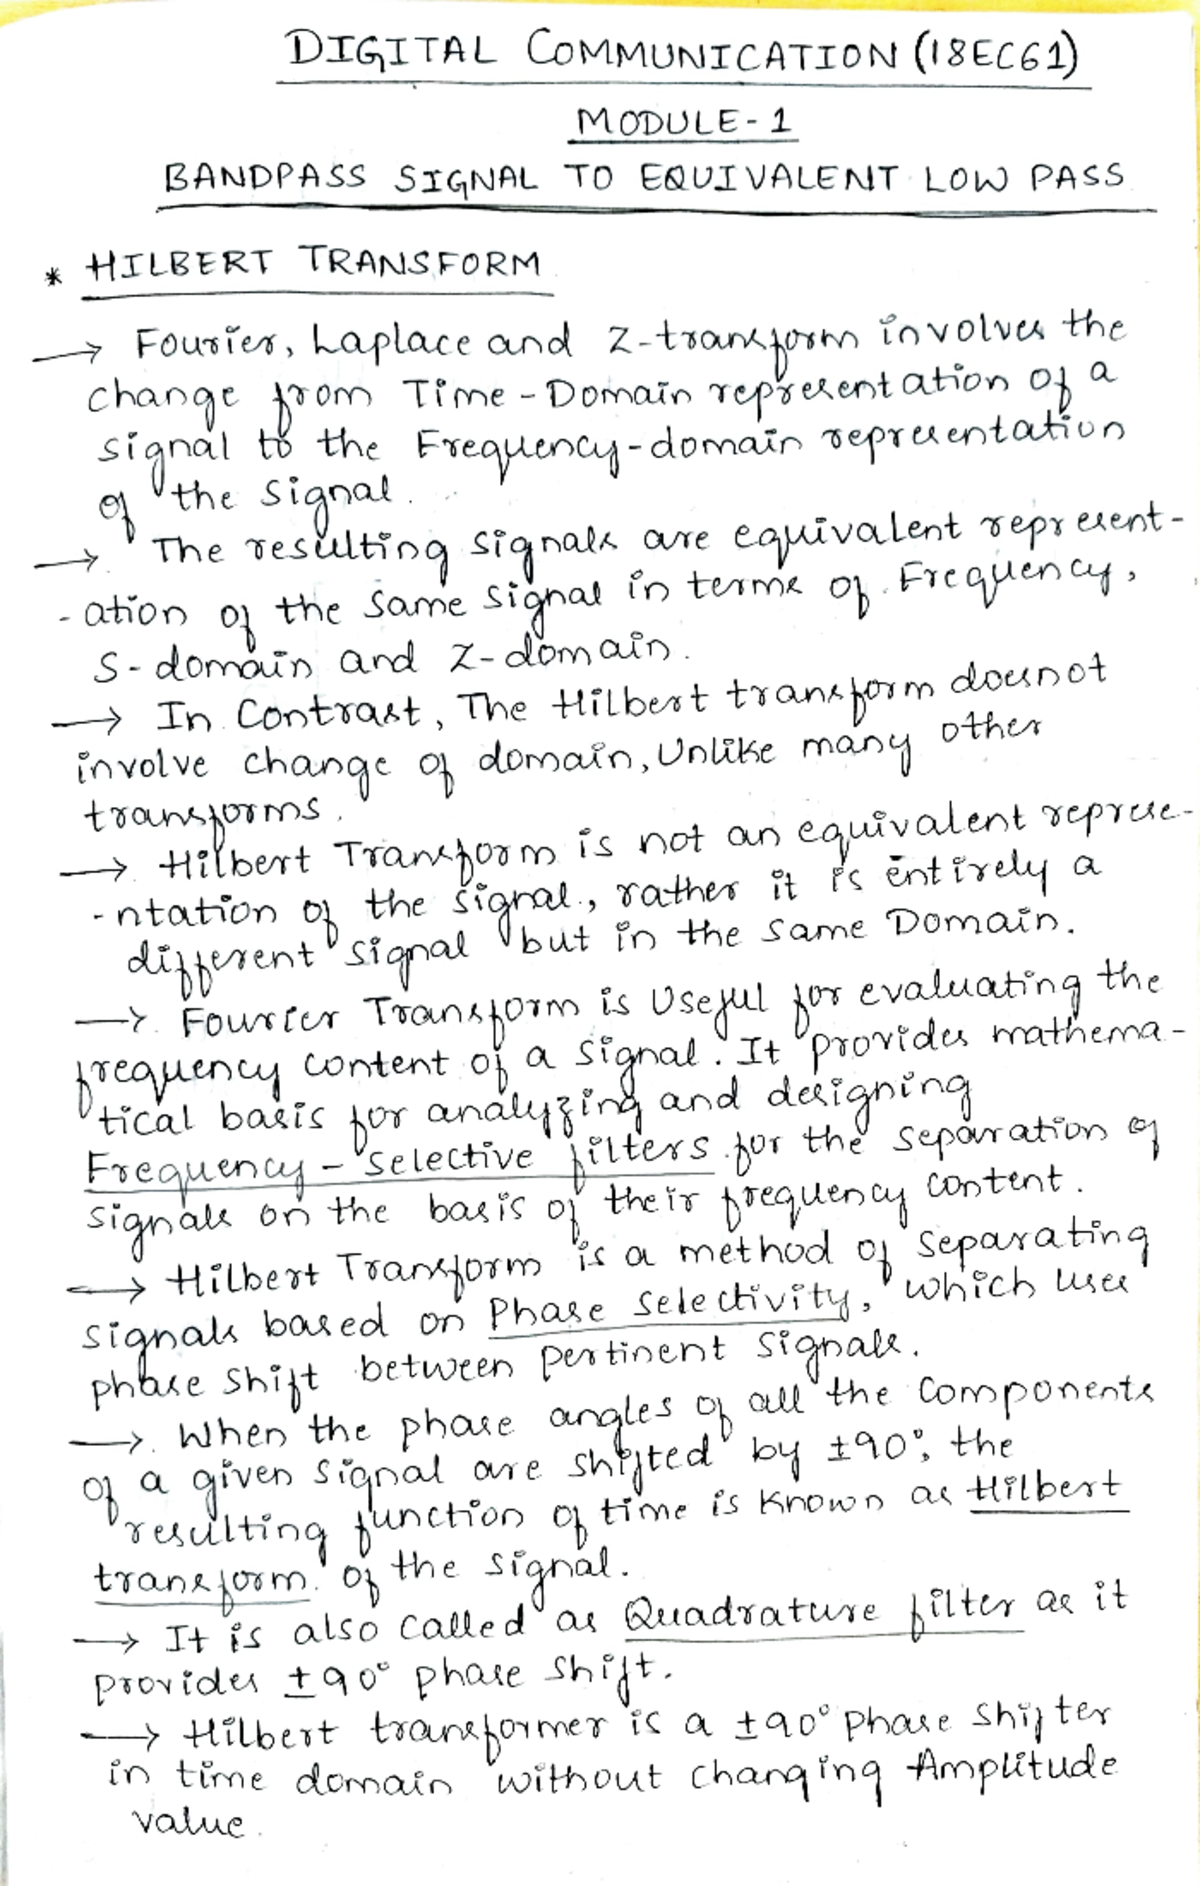 DIGITAL COMMUNICATION (18EC61)
MODULE-1
BANDPASS SIGNAL TO EQUIVALENT LOW PASS
* HILBERT TRANSFORM
→ Fourier, Laplace and Z-transform involves the
change from Time-Domain representation of a
signal to the Frequency-domain representation
of the signal.
→ The resulting signals are equivalent represent-
-ation of the same signal in terms of Frequency,
S-domain and Z-domain.
→ In Contrast, The Hilbert transform doesnot
involve change of domain, Unlike many other
transforms.
→ Hilbert Transform is not an equivalent represe-
-ntation of the signal, rather it is entirely a
different signal but in the same Domain.
→ Fourier Transform is Useful for evaluating the
frequency content of a signal. It provides mathema-
tical basis for analyzing and designing
Frequency-selective filters for the separation of
signals on the basis of their frequency content.
→ Hilbert Transform is a method of separating
signals based on Phase selectivity, which uses
phase shift between pertinent signals.
→ When the phase angles of all the components
of a given signal are shifted by ±90°, the
resulting function of time is known as Hilbert
transform of the signal.
→ It is also called as Quadrature filter as it
provides ±90° phase shift.
→ Hilbert transformer is a ±90° phase shifter
in time domain without changing Amplitude
value.